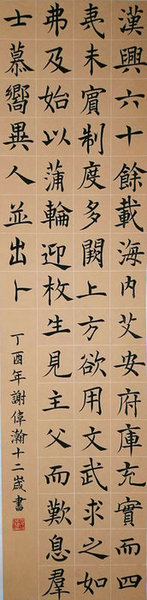 漢興六十餘載海內艾安府庫充實而四
夷未賓制度多闕上方欲用文武求之如
弗及始以蒲輪迎枚生見主父而歎息羣
士慕嚮異人並出卜
丁酉年謝偉瀚十二歲書